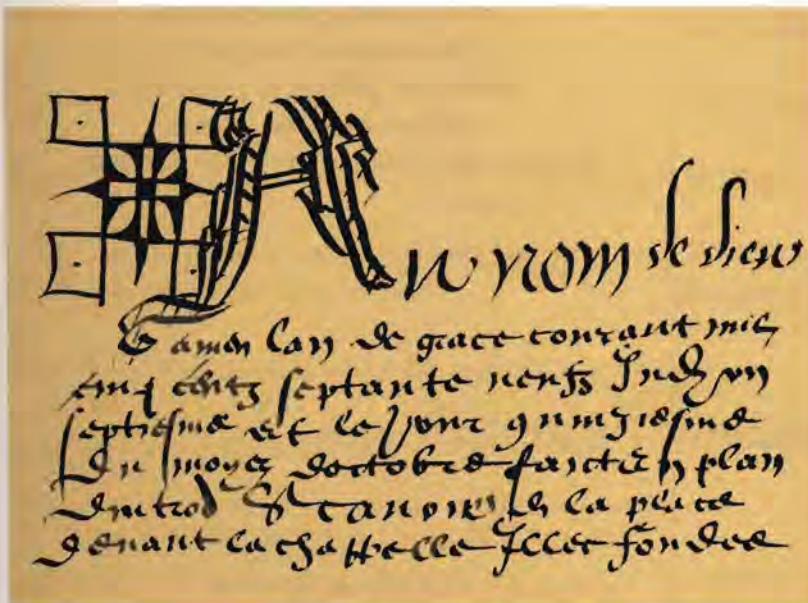 Au nom de dieu
Et amen Lan de grace courant mil
cinq centz septante neufz Ind on
septiesme et le Jour quinziesme
du moys doctobre faict en plan
dintrod la place
devant la chappelle Illec fondee